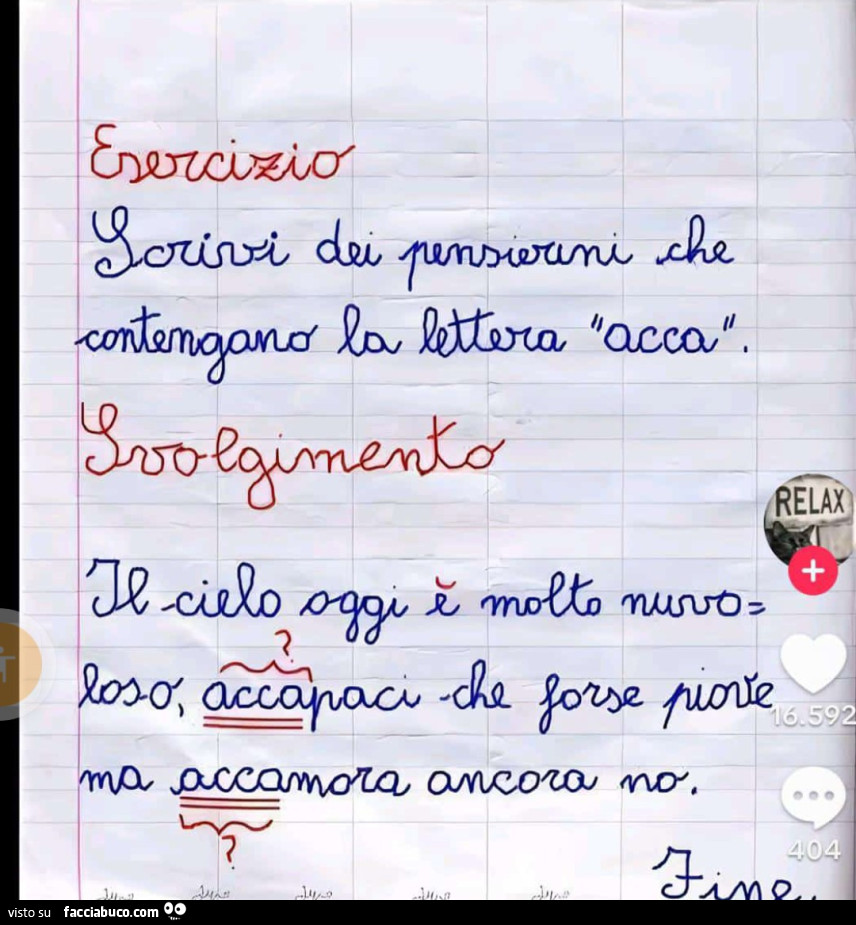 Esercizio
Scrivi dei pensierini che
contengano la lettera "acca".
Svolgimento
Il cielo oggi è molto nuvo=
?
loso, accapaci che forse piove
ma accamora ancora no.
?
Fine.
RELAX
16.592
404
visto su facciabuco.com